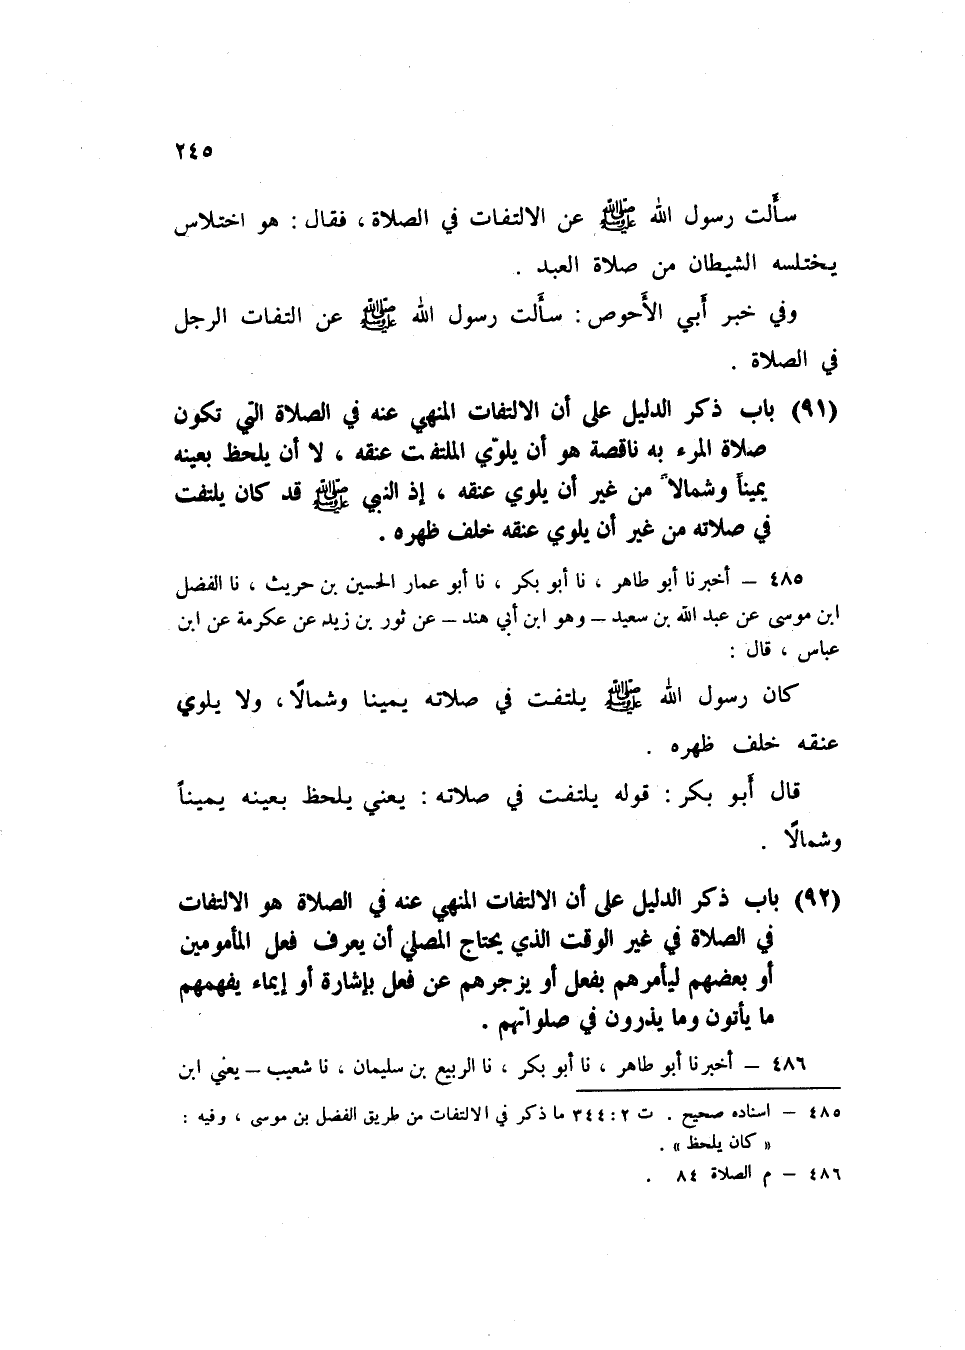 ٢٤٥
سألت رسول الله ﷺ عن الالتفات في الصلاة ، فقال : هو اختلاس
يختلسه الشيطان من صلاة العبد .
وفي خبر أبي الأحوص : سألت رسول الله ﷺ عن التفات الرجل
في الصلاة .
(٩١) باب ذكر الدليل على أن الالتفات المنهي عنه في الصلاة التي تكون
صلاة المرء به ناقصة هو أن يلوّي الملتفت عنقه ، لا أن يلحظ بعينه
يميناً وشمالاً من غير أن يلوي عنقه ، إذ النبي ﷺ قد كان يلتفت
في صلاته من غير أن يلوي عنقه خلف ظهره .
٤٨٥ – أخبرنا أبو طاهر ، نا أبو بكر ، نا أبو عمار الحسين بن حريث ، نا الفضل
ابن موسى عن عبد الله بن سعيد – وهو ابن أبي هند – عن ثور بن زيد عن عكرمة عن ابن
عباس ، قال :
كان رسول الله ﷺ يلتفت في صلاته يمينا وشمالًا ، ولا يلوي
عنقه خلف ظهره .
قال أبو بكر : قوله يلتفت في صلاته : يعني يلحظ بعينه يميناً
وشمالًا .
(٩٢) باب ذكر الدليل على أن الالتفات المنهي عنه في الصلاة هو الالتفات
في الصلاة في غير الوقت الذي يحتاج المصلي أن يعرف فعل المأمومين
أو بعضهم ليأمرهم بفعل أو يزجرهم عن فعل بإشارة أو إيماء يفهمهم
ما يأتون وما يذرون في صلواتهم .
٤٨٦ – أخبرنا أبو طاهر ، نا أبو بكر ، نا الربيع بن سليمان ، نا شعيب – يعني ابن
٤٨٥ – اسناده صحيح . ت ٢ : ٣٤٤ ما ذكر في الالتفات من طريق الفضل بن موسى ، وفيه :
« كان يلحظ » .
٤٨٦ – م الصلاة ٨٤ .